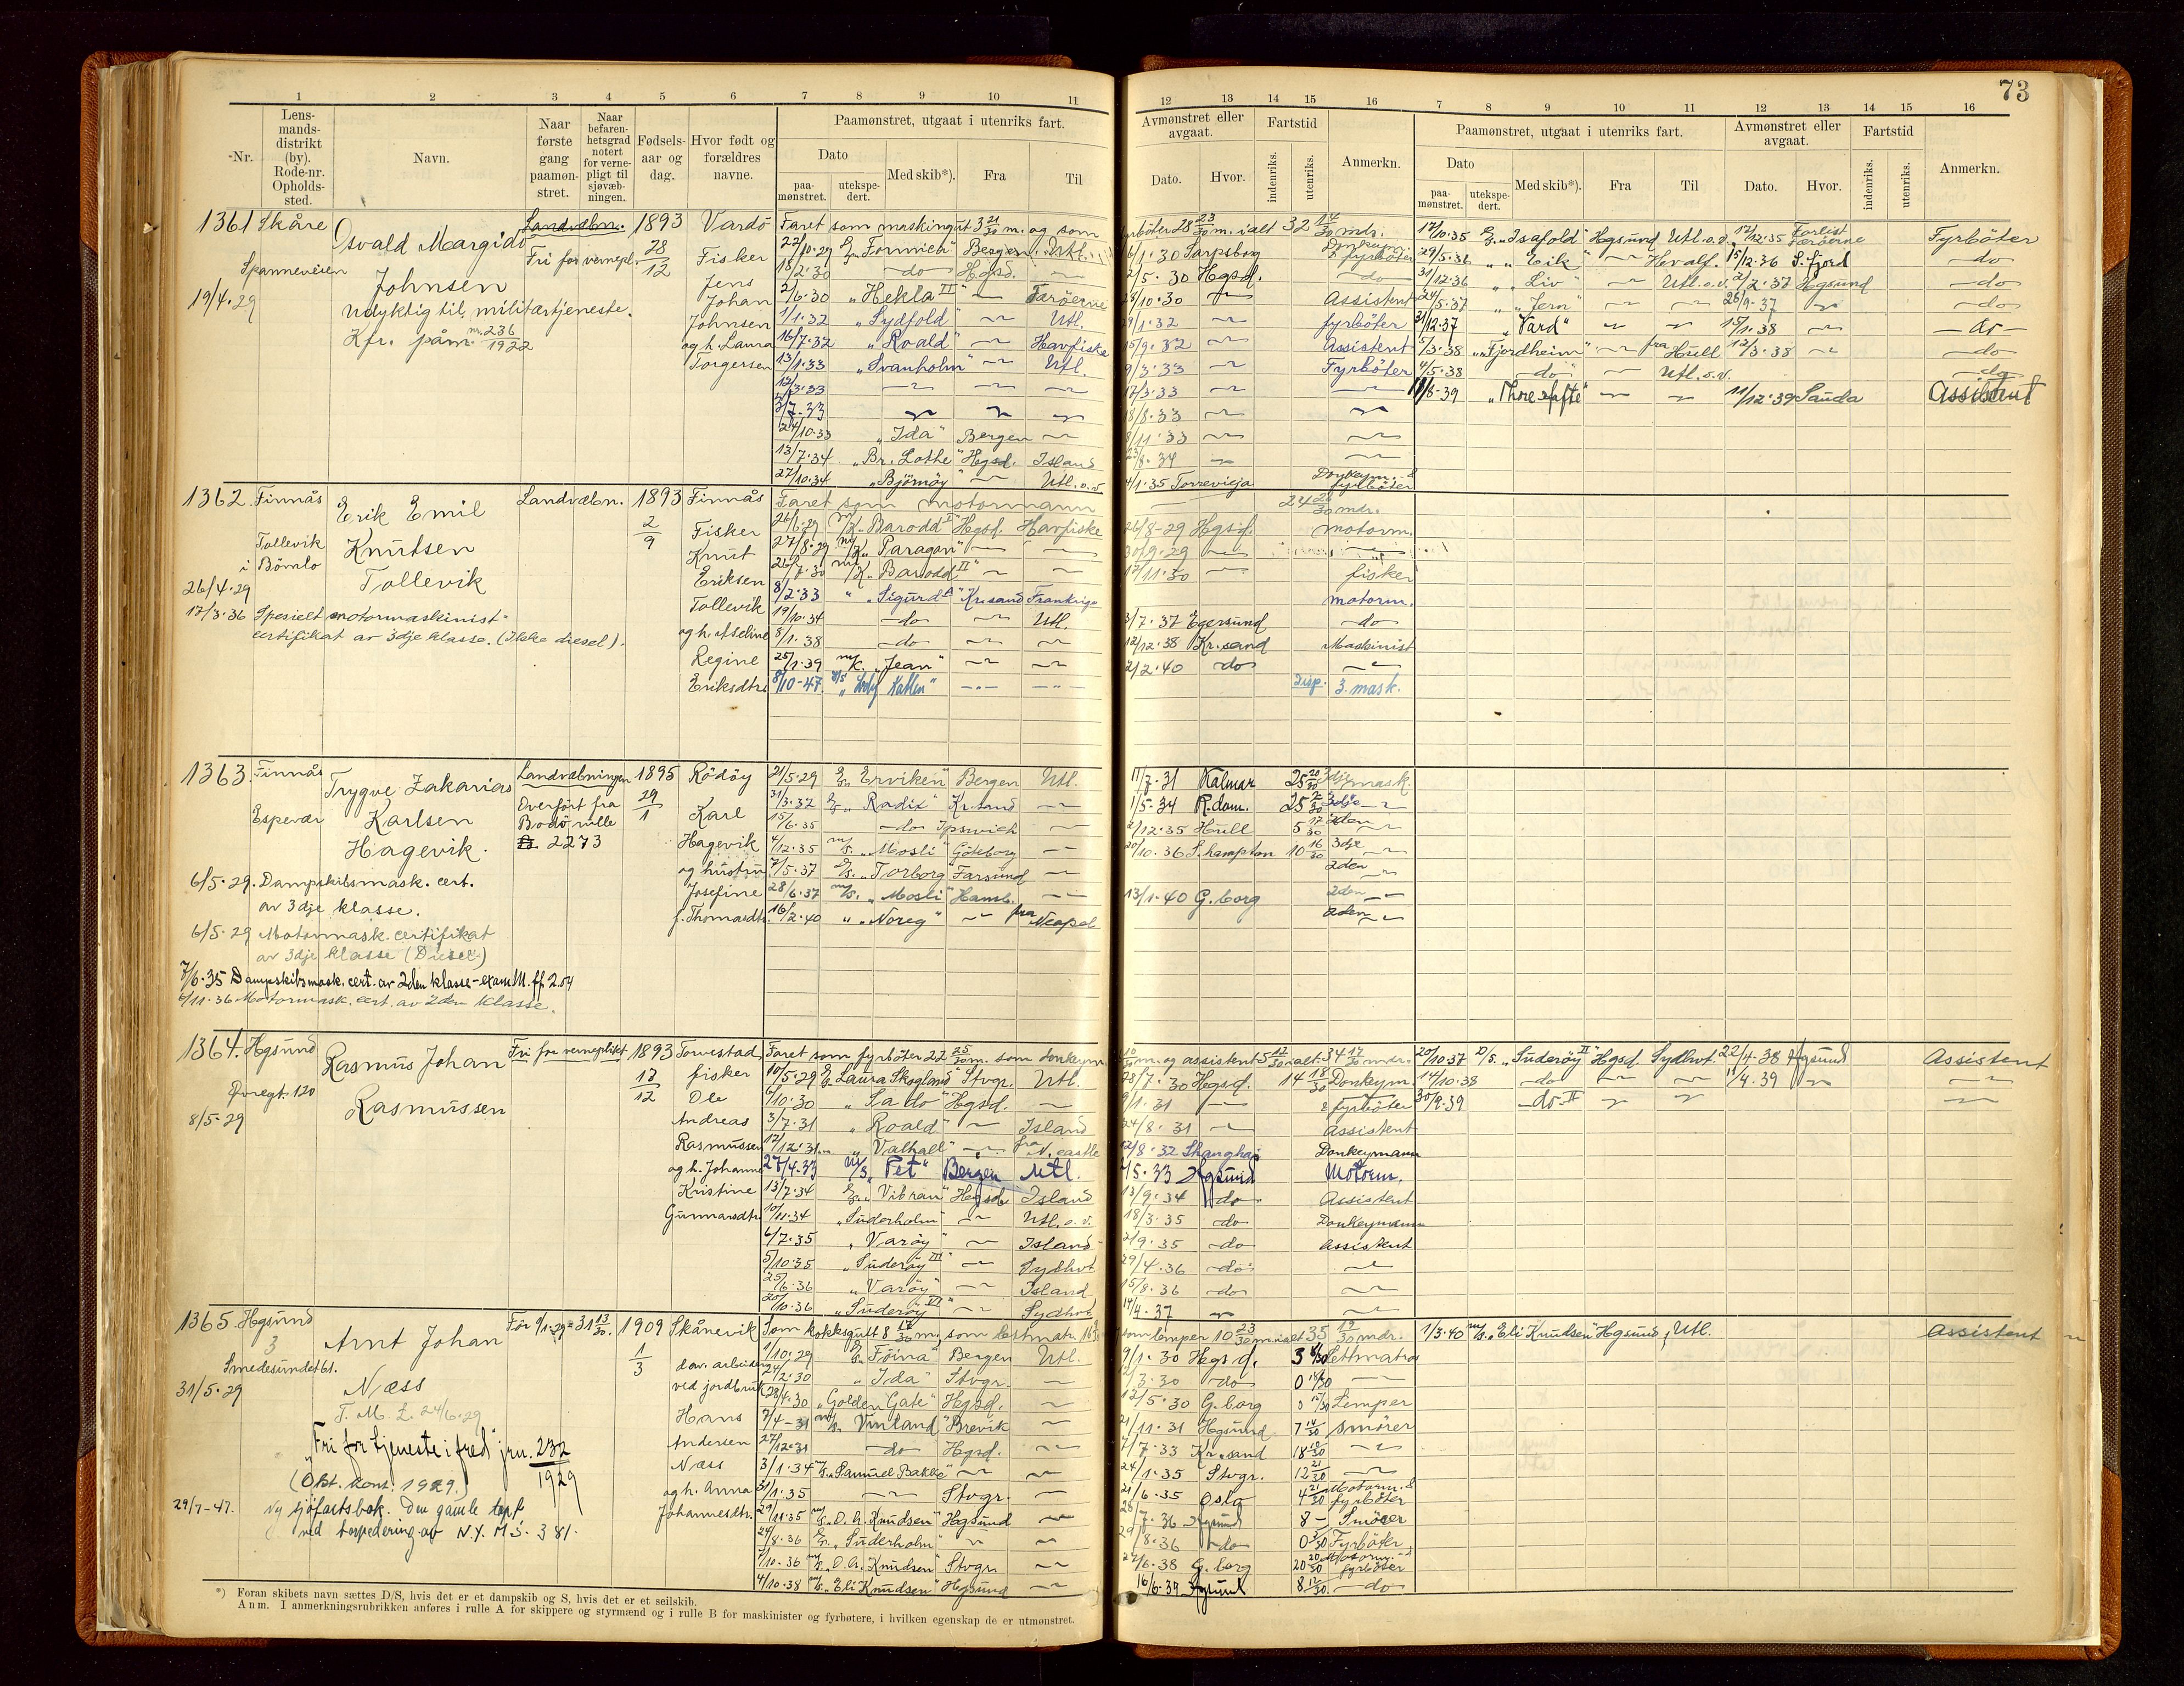 73
1 2 3 4 5 6 7 8 9 10 11 12 13 14 15 16 7 8 9 10 11 12 13 14 15 16
Nr.
Lens-
mands-
distrikt
(by).
Rode-nr.
Opholds-
sted.
Navn.
Naar
første
gang
paamøn-
stret.
Naar
befaren-
hetsgrad
notert
for verne-
pligt til
sjøvæb-
ningen.
Fødsels-
aar og
dag.
Hvor født og
forældres
navne.
Paamønstret, utgaat i utenriks fart.
Dato
paa-
mønstret.
utekspe-
dert.
Med skib*).
Fra
Til
Avmønstret eller
avgaat.
Dato.
Hvor.
Fartstid
indenriks.
utenriks.
Anmerkn.
Paamønstret, utgaat i utenriks fart.
Dato
paa-
mønstret.
utekspe-
dert.
Med skib*).
Fra
Til
Avmønstret eller
avgaat.
Dato.
Hvor.
Fartstid
indenriks.
utenriks.
Anmerkn.
1361 Skåre
Spanneveien
19/4.29
Osvald Margido
Johnsen
Udyktig til militærtjeneste.
Kfr. påm. nr. 236/1922
Landvæbn.
Fri for vernepl.
1893
28/12
Vardö
Fisker
Jens
Johan
Johnsen
og h. Laura
Torgersen
Faret som maskingut 3 21/30 m. og som fyrböter 28 23/30 m. ialt 32 14/30 mdr.
22/10.29 "Fornnica" Bergen Utl. 6/1.30 Sarpsborg
18/2.30 do Hgsd. 2/5.30 Hgsd. do
2/6.30 "Hekla II" Færöerne 28/10.30 Assistent
1/1.32 "Sydfold" Utl. 29/1.32 fyrböter
16/7.32 "Roald" Havfiske 15/9.32 Assistent
13/1.33 "Svanholm" Utl. 9/3.33 Fyrböter
17/3.33 17/5.33
3/7.33 18/8.33
24/10.33 "Ida" Bergen 8/11.33
13/7.34 "Br. Lothe" Hgsd. Island 23/8.34
27/10.34 "Björnöy" Utl. o.v. 4/1.35 Torrevieja Donkeym. & fyrböter
17/10.35 "Isafold" Hgsund Utl. o.v. 12/12.35 Forlist Færöerne Fyrböter
29/5.36 "Eik" Havalf. 15/12.36 S. fjord do
31/12.36 "Liv" Utl. o.v. 2/2.37 Hgsund do
24/5.37 "Jern" 26/9.37 do
31/12.37 "Vard" 15/1.38 do
5/3.38 "Fjordheim" fra Hull 12/3.38 do
4/5.38 do Utl. o.v. do
11/8-39 "Thore Hafte" 11/12.39 Sauda Assistent
1362 Finnås
Tollevik
i Bömlo
26/4.29
Erik Emil
Knutsen
Tollevik
17/3.36 Spesielt motormaskinist-
certifikat av 3dje klasse. (Ikke diesel).
Landvæbn.
1893
2/9
Finnås
Fisker
Knut
Eriksen
Tollevik
og h. Aseline
Regine
Eriksdtr.
Faret som motormann 24 26/30 mdr.
26/6.29 M/K "Barodd I" Hgsd. Havfiske 26/8-29 Hgsd. motorm.
27/8.29 M/K "Paragon" 30/9.29
26/7.30 M/K "Barodd II" 17/11.30 fisker
8/2.33 "Sigurd" Kr.sand Frankrige motorm.
19/10.34 do Utl. 3/7.37 Egersund do
8/1.38 do 12/12.38 Kr.sand Maskinist
25/1.39 M/K. "Jean" 2/2.40 do
8/10-47. "Lady Katten" Disp. 3. mask.
1363. Finnås
Espevær
Trygve Zakarias
Karlsen
Hagevik.
6/5.29. Dampskibsmask. cert.
av 3dje klasse.
6/5.29 Motormask. certifikat
av 3dje klasse (Diesel)
7/6.35 Dampskibsmask. cert. av 2den klasse - exam M. ff 2.04
6/11.36 Motormask. cert. av 2den klasse.
Landvæbningen
Overført fra
Bodö rulle
B. 2273
1895
29/1
Rödöy
Karl
Hagevik
og hustru
Josefine
f. Thomasdtr.
21/5.29 "Erviken" Bergen Utl. 11/7.31 Kalmar 25 20/30 3dje mask.
31/3.32 "Radix" Kr.sand 1/5.34 R.dam. 25 2/30 3dje
15/6.35 do Ipswich 2/12.35 Hull 5 17/30 2den
4/12.35 M/S. "Mosli" Göteborg 20/10.36 S.hampton 10 16/30 3dje
7/5.37 "Torborg" Farsund 2den
28/6.37 M/S. "Mosli" Hamb. 13/1.40 G.borg 2den
16/2.40 "Noreg" fra Neapel 2den
1364. Hgsund
Øvregt. 120
8/5.29
Rasmus Johan
Rasmussen
Fri for verneplikt.
1893
17/12
Torvestad
fisker
Ole
Andreas
Rasmussen
og h. Johanne
Kristine
Gunnarsdtr.
Faret som fyrböter 22 25/30 m. som donkeym. m. og assistent 5 12/30 ialt. 34 17/30 mdr.
10/5.29 "Laura Skogland" Stvgr. Utl. 28/7.30 Hgsd. 14 18/30 Donkeym.
9/10.30 "Sado" Hgsd. 9/1.31 & fyrböter
3/7.31 "Roald" Island 24/8.31 Assistent
12/12.31 "Valhall" fra N. castle 12/8.32 Shanghai Donkeymann
27/4.33 M/S "Pet" Bergen Utl. 7/5.33 Hgsund Motorm.
13/7.34 "Vibran" Hgsd. Island 13/9.34 do Assistent
10/11.34 "Suderholm" Utl. o.v. 18/3.35 do Donkeymann
6/7.35 "Varöy" Island 2/9.35 do Assistent
5/10.35 "Suderöy III" Sydhvt. 29/4.36 do
25/6.36 "Varöy" Island 15/8.36 do
20/10.36 "Suderöy VI" Sydhvt. 14/4.37
20/10.37 D/S. "Suderöy II" Hgsd. Sydhvt. 22/4.38 Hgsund Assistent
14/10.38 do 11/4.39
30/9.39 do II
1365. Hgsund
3
Smedesundet 61.
31/5.29
Arnt Johan
Næss
T. M. L. 24/6.29
"Fri for tjeneste i fred" jrn. 232/1929
(Obt. kont. 1929.)
29/7-47. Ny sjöfartsbok. Den gamle tapt
ved torpedering av N.Y. M/S. 381.
För 9/1.29 = 31 13/30.
1909
1/3
Skånevik
dav. arbeider
ved jordbruk
Hans
Andersen
Næss
og h. Anna
Johannesdtr.
Som kokksgutt 8 m., som lettmatr. som lemper 10 23/30 m. ialt 35 19/30 mdr.
1/10.29 "Föina" Bergen Utl. 9/1.30 Hgsd. 3 Lettmatros
24/2.30 "Ida" Stvgr. 3.30 do
28/4.30 "Golden Gate" Hgsd. 12/5.30 G.borg 0 15/30 Lemper
7/4-31 M/S "Vinland" Brevik 21/11.31 Hgsund 7 14/30 smörer
27/12.31 do Hgsd. 7/7.33 Kr.sand 18 10/30
3/1.34 "Samuel Bakke" 24/1.35 Stvgr. 12 21/30
31/1.35 Stvgr. 21/6.35 Oslo 4 21/30 Motorm. & fyrböter
29/11.35 M/S. "O. A. Knudsen" Hgsund 28/7.36 Hgsund 8 Smörer
24/8.36 "Suderholm" 29/8.36 do Fyrböter
7/10.36 M/S. "O. A. Knudsen" Stvgr. 27/6.38 G.borg 20 20/30 Motorm. fyrböter
4/10.38 M/S. "Eli Knudsen" Hgsund 16/6.39 Hgsund 8 12/30 do
1/3.40 M/S. "Eli Knudsen" Hgsund, Utl. Assistent
*) Foran skibets navn sættes D/S, hvis det er et dampskib og S, hvis det er et seilskib.
Anm. I anmerkningsrubrikken anføres i rulle A for skippere og styrmænd og i rulle B for maskinister og fyrbøtere, i hvilken egenskap de er utmønstret.